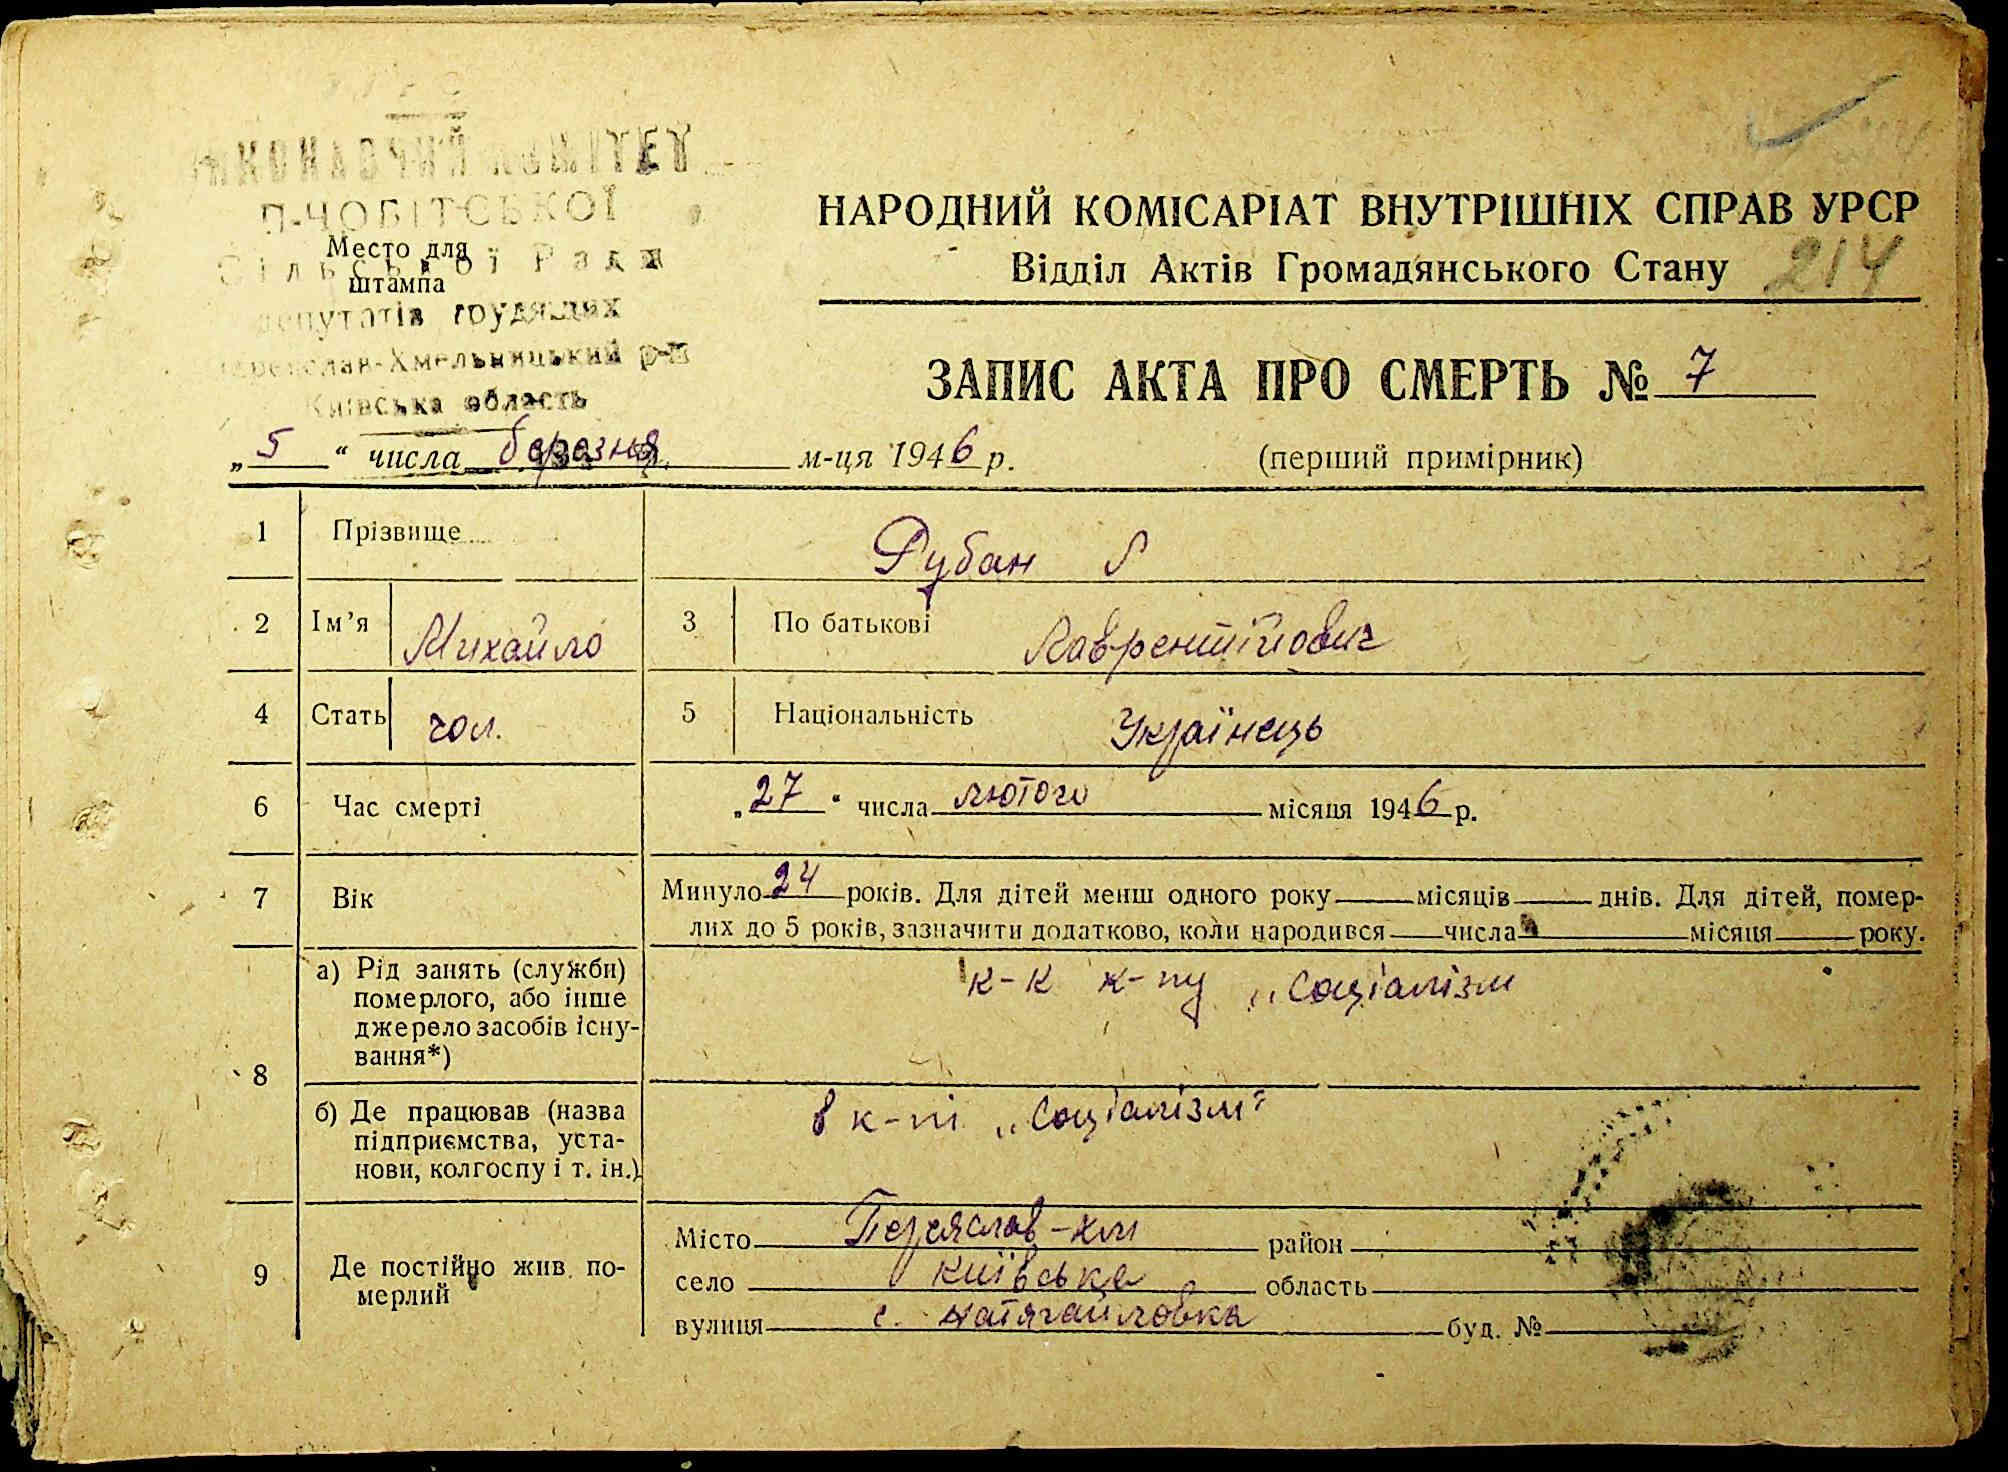 ВИКОНАВЧИЙ КОМІТЕТ
П-ЧОБІТСЬКОЇ
Сільської Ради
депутатів трудящих
Переяслав-Хмельницький р-н
Київська область
Место для
штампа
НАРОДНИЙ КОМІСАРІАТ ВНУТРІШНІХ СПРАВ УРСР
Відділ Актів Громадянського Стану
214
ЗАПИС АКТА ПРО СМЕРТЬ № 7
„5“ числа березня м-ця 1946 р. (перший примірник)
1 Прізвище Рубан
2 Ім’я Михайло 3 По батькові Лаврентійович
4 Стать чол. 5 Національність Українець
6 Час смерті „27“ числа лютого місяця 1946 р.
7 Вік Минуло 24 років. Для дітей менш одного року місяців днів. Для дітей, помер-
лих до 5 років, зазначити додатково, коли народився числа місяця року.
8 а) Рід занять (служби)
померлого, або інше
джерело засобів існу-
вання*)
к-к к-пу „Соціалізм
б) Де працював (назва
підприємства, уста-
нови, колгоспу і т. ін.)
в к-пі „Соціалізм“
9 Де постійно жив по-
мерлий
Місто Переяслав-хм район
село Київська область
вулиця с. буд. №